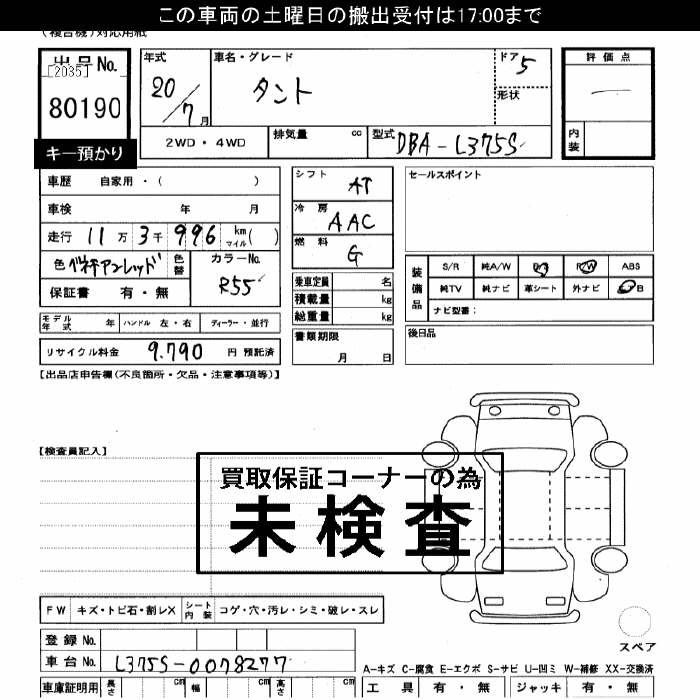 この車両の土曜日の搬出受付は17:00まで
(複合機)対応用紙
出品No. [2035] 80190
キー預かり
年式 20/7月
車名・グレード タント
ドア 5
形状
評価点 —
内装
2WD・4WD 排気量 cc 型式 DBA-L375S
車歴 自家用・( )
車検 年 月
走行 11万3千996 km マイル( )
色替 カラーNo. R55
保証書 有・無
シフト AT
冷房 AAC
燃料 G
乗車定員 名
積載量 kg
総重量 kg
書類期限 月 日
セールスポイント
装備品 S/R 純A/W P/S P/W ABS
純TV 純ナビ 革シート 外ナビ B
ナビ型番:
後日品
モデル年式 年 ハンドル 左・右 ディーラー・並行
リサイクル料金 9,790 円 預託済
【出品店申告欄(不良箇所・欠品・注意事項等)】
【検査員記入】
買取保証コーナーの為
未検査
FW キズ・トビ石・割レX シート内装 コゲ・穴・汚レ・シミ・破レ・スレ
スペア
登録No.
車台No. L375S-0078277
A-キズ C-腐食 E-エクボ S-サビ U-凹ミ W-補修 XX-交換済
車庫証明用 長さ cm 幅 cm 高さ cm
工具 有・無 ジャッキ 有・無